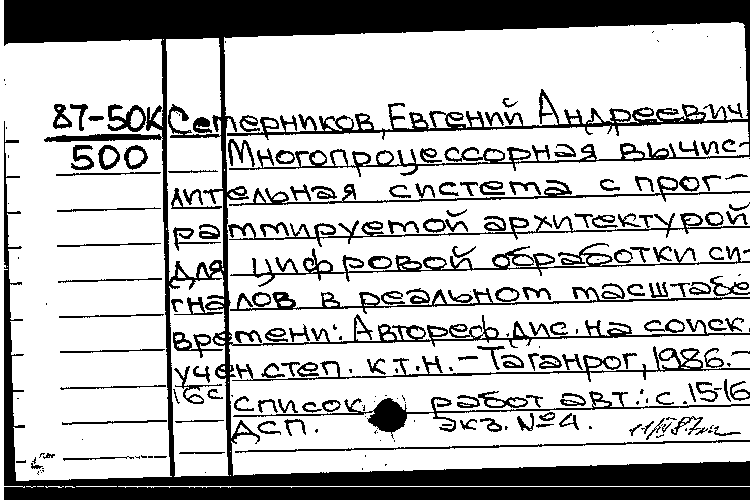 87-50К Сетерников, Евгений Андреевич
500 Многопроцессорная вычис-
лительная система с прог-
раммируемой архитектурой
для цифровой обработки си-
гналов в реальном масштабе
времени: Автореф. дис. на соиск.
учен. степ. к.т.н. – Таганрог, 1986. –
16с
список работ авт.: с. 15-16
ДСП. экз. №4.